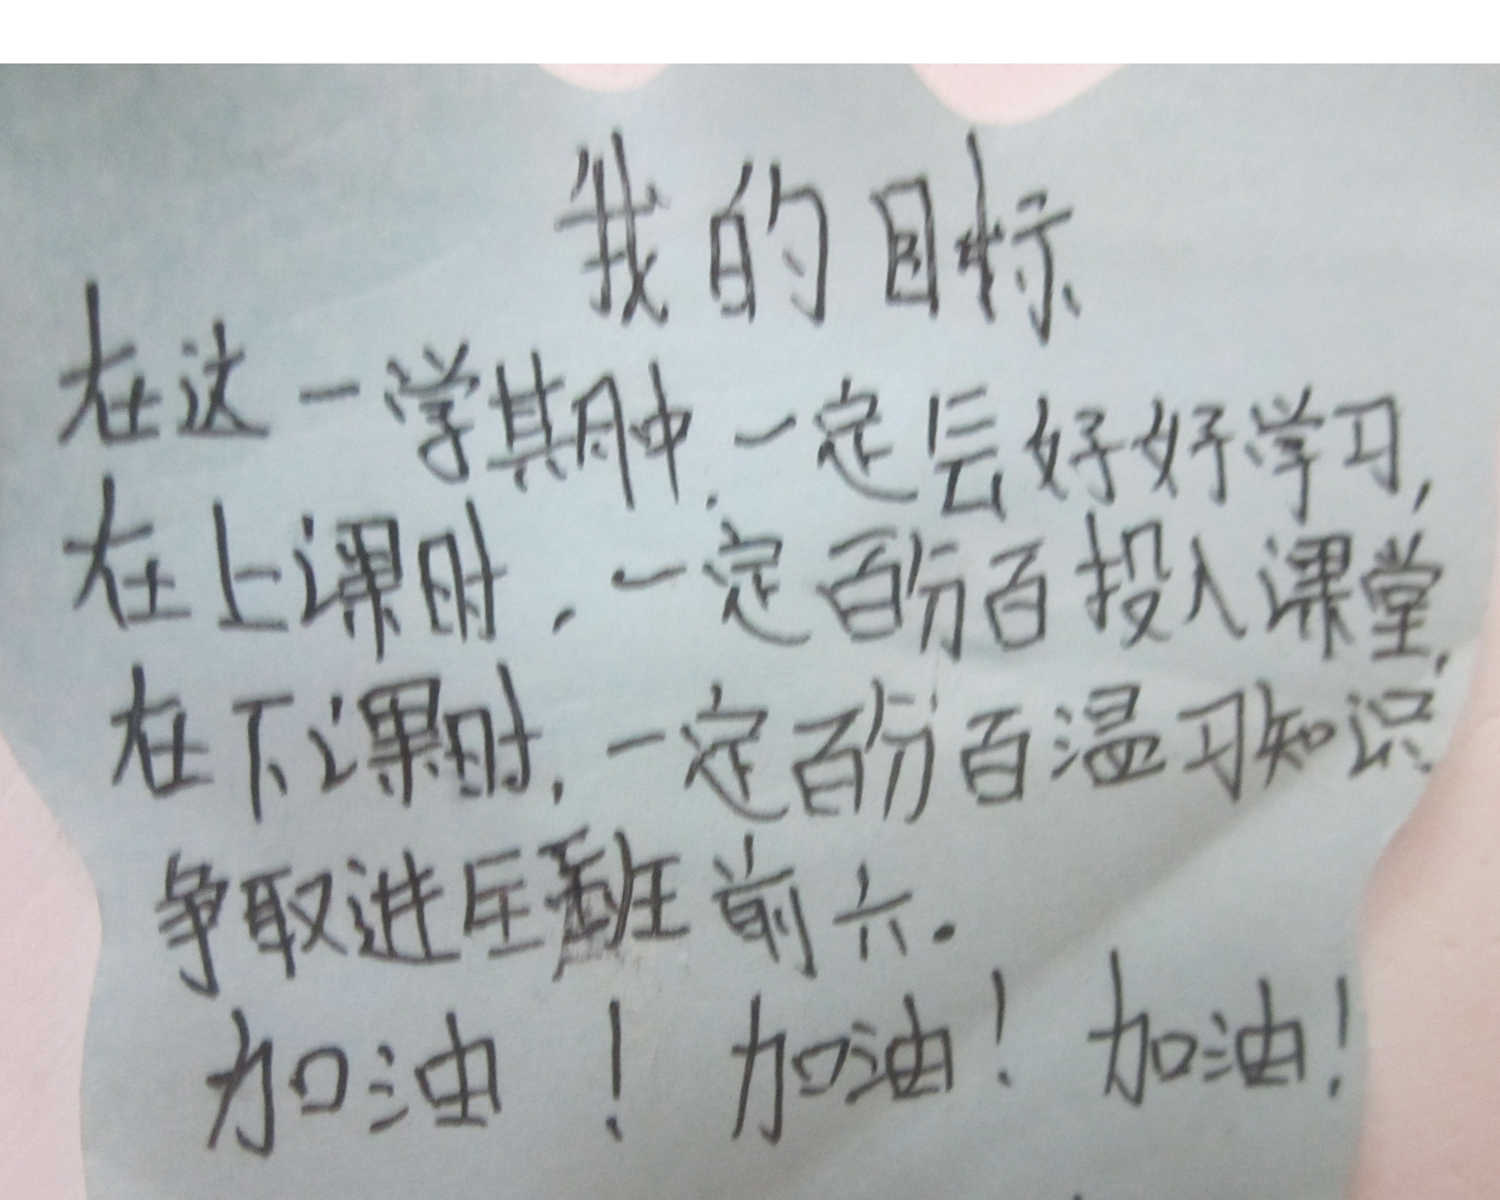 我的目标
在这一学期中,一定会好好学习,
在上课时,一定百分百投入课堂,
在下课时,一定百分百温习知识,
争取进全班前六.
加油!加油!加油!